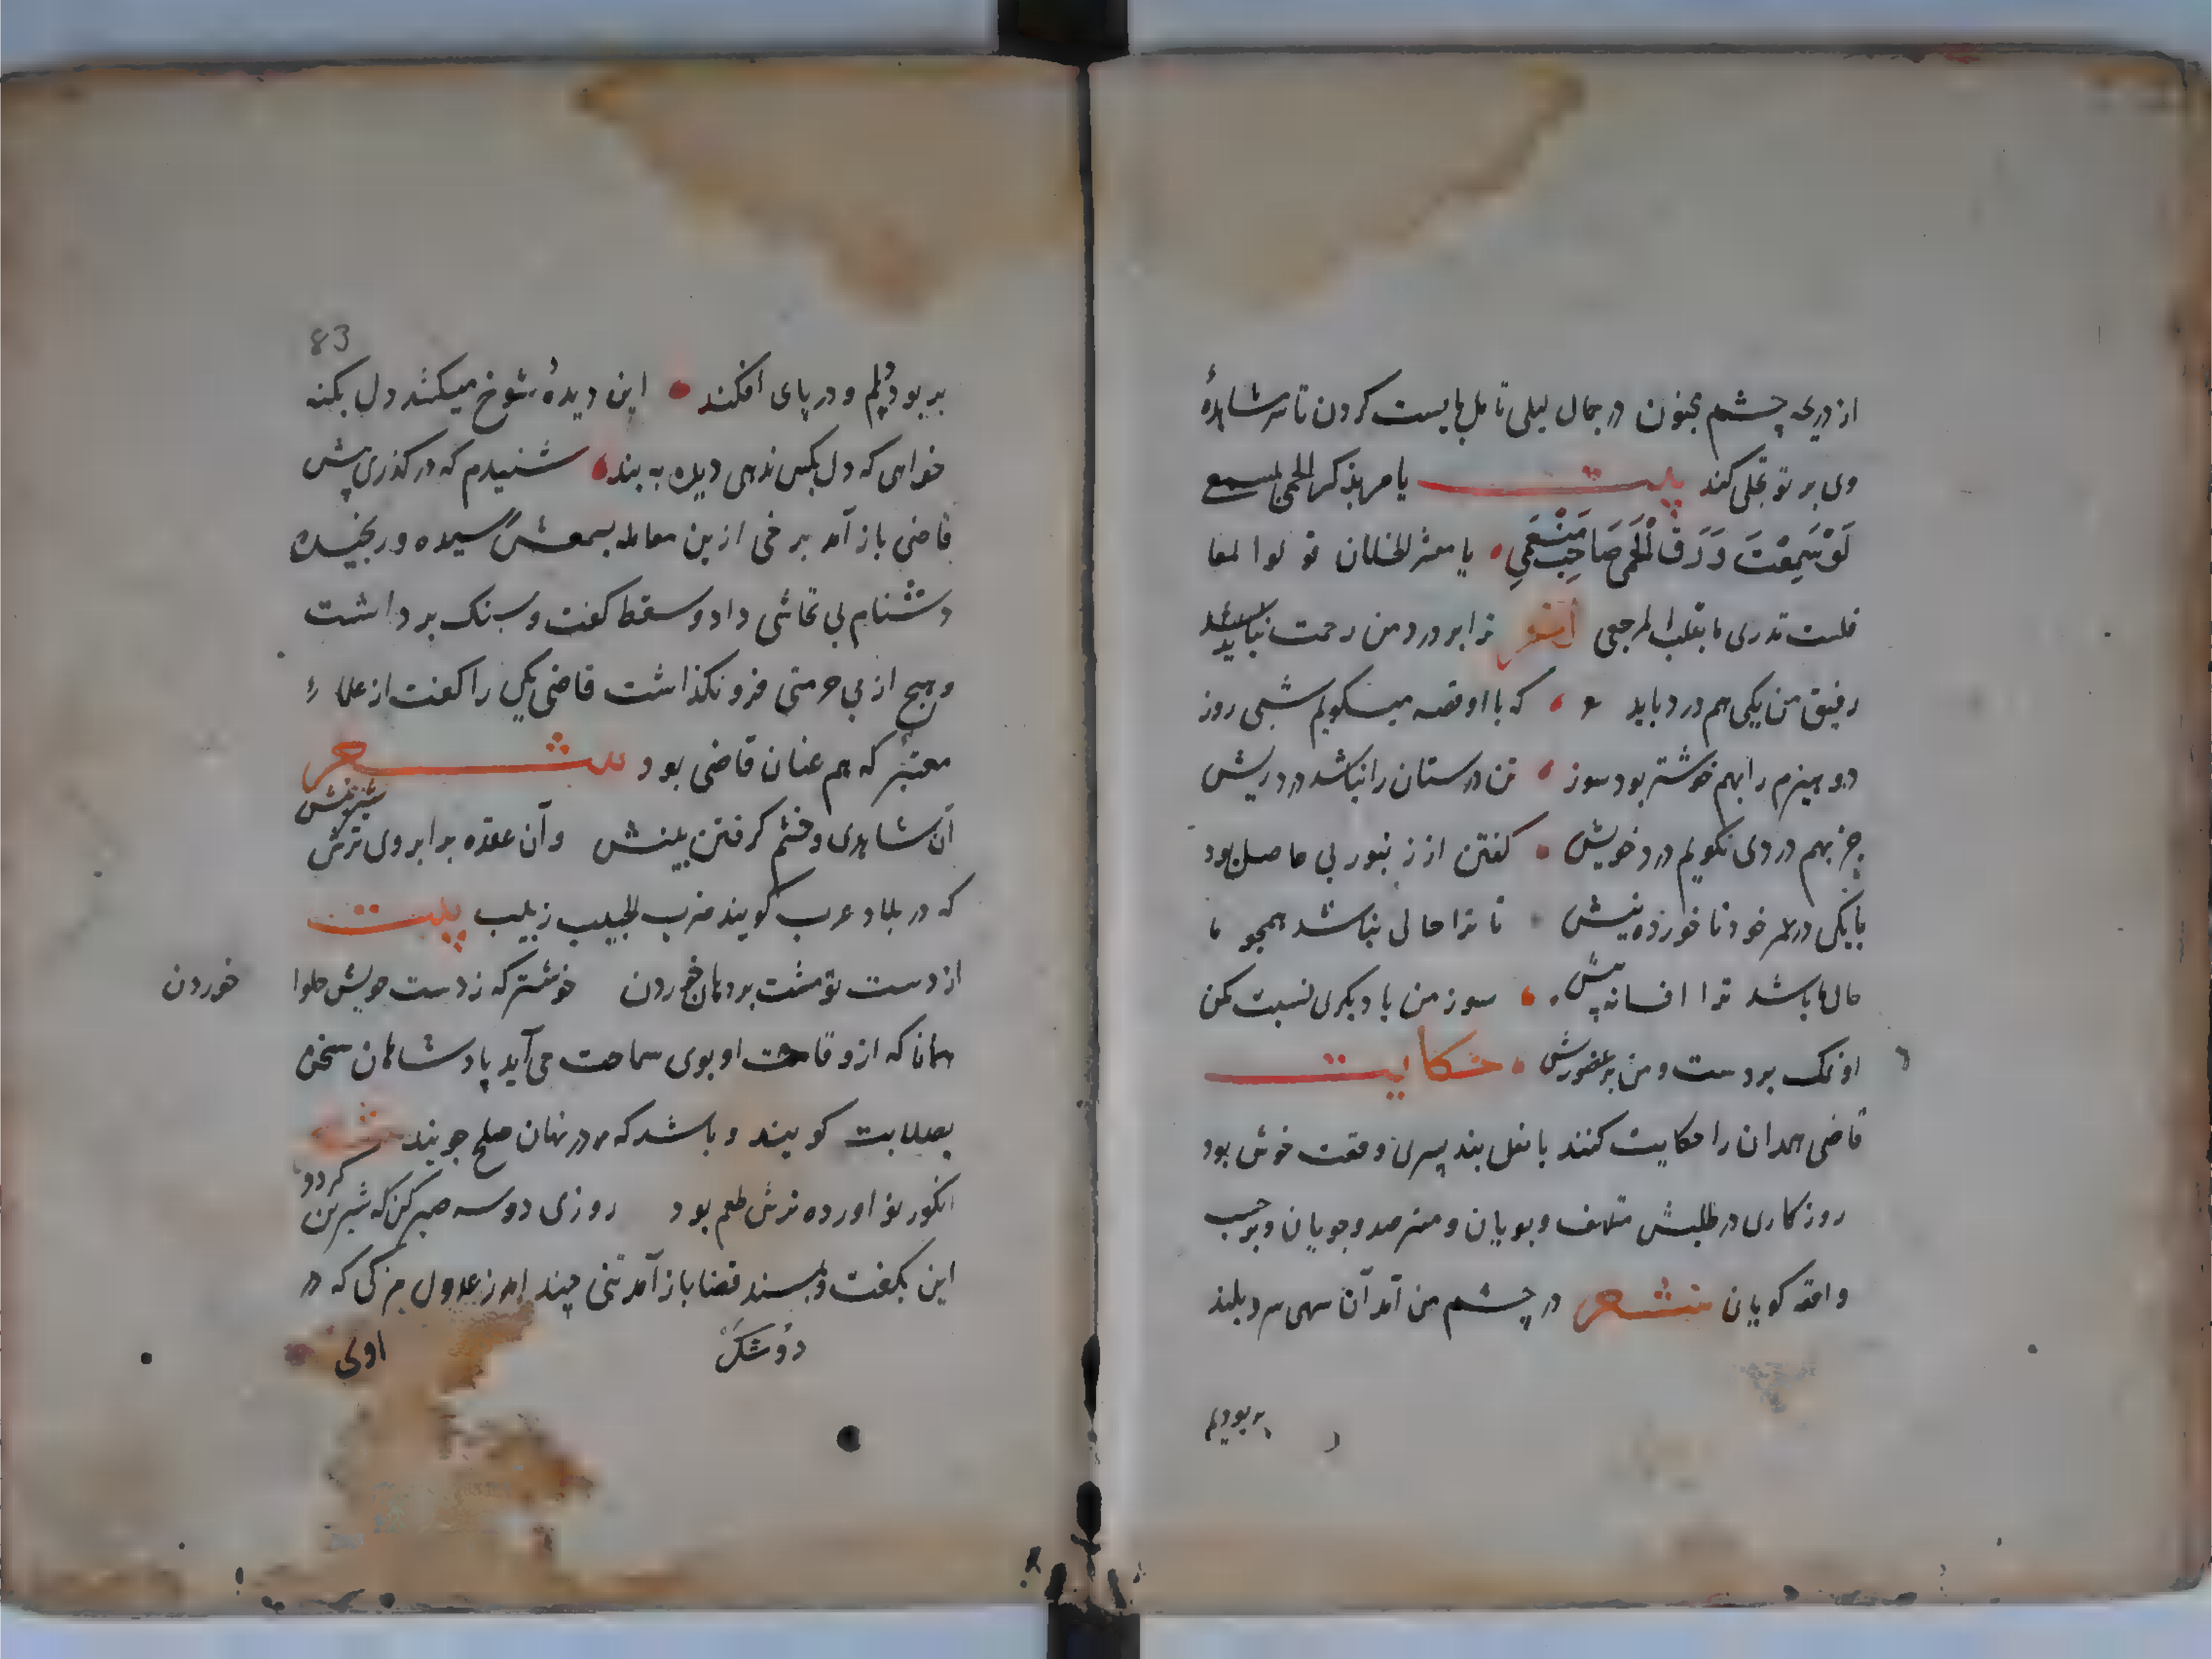 از دریچه چشم مجنون در جمال لیلی تامل بایست کردن تا سر مشاهدهٔ
وی بر تو تجلی کند بیت یا مر بذکر الحمی لمسمع
لَوْ سَمِعَتْ وَرَقُ الْحِمی صَاحَتْ مَعی یا معشر الخلان قولوا لمعا
فلست تدری ما بقلب المرجعی ترا بر درد من رحمت نیاید
رفیق من یکی هم درد باید که با او قصه میگویم شبی روز
دو هیزم را بهم خوشتر بود سوز تن درستان را نباشد درد ریش
جز بهم دردی نگویم درد خویش گفتن از زنبور بی حاصل بود
با یکی در عمر خود ناخورده نیش تا ترا حالی نباشد همچو ما
حال ما باشد ترا افسانه پیش سوز من با دیگری نسبت مکن
او نمک بر دست و من بر عضو ریش حکایت
قاضی همدان را حکایت کنند با نعل بند پسری وقت خوش بود
روزکاری در طلبش متلهف و بویان و مترصد و جویان و بر حسب
واقعه کویان شعر در چشم من آمد آن سهی سرو بلند
بربودلم
83
بربود دلم و در پای افکند این دیدهٔ شوخ میکشد دل بکمند
خواهی که دل بکس ندهی دیده به بند شنیدم که در کذری پیش
قاضی باز آمد برخی ازین معامله بسمعش رسیده و رنجیده
دشنام بی تحاشی داد و سقط کفت و سنک برداشت
و هیچ از بی حرمتی فرونکذاشت قاضی یکی را کفت از علماء
معتبر که هم عنان قاضی بود شعر
آن شاهدی و خشم کرفتن بینش وآن عقده بر ابروی ترش شیرینش
که در بلاد عرب کویند ضرب الحبیب زبیب بیت
از دست تو مشت بر دهان خوردن خوشتر که ز دست خویش حلوا خوردن
همانا که از وقاحت او بوی سماحت می آید پادشاهان سخن
بصلابت کویند و باشد که در نهان صلح جویند
انکور نو اورده ترش طعم بود روزی دو سه صبر کن که شیرین کردد
این بکفت و بمسند قضا باز آمد تنی چند از عدول مزکی که در
اولی